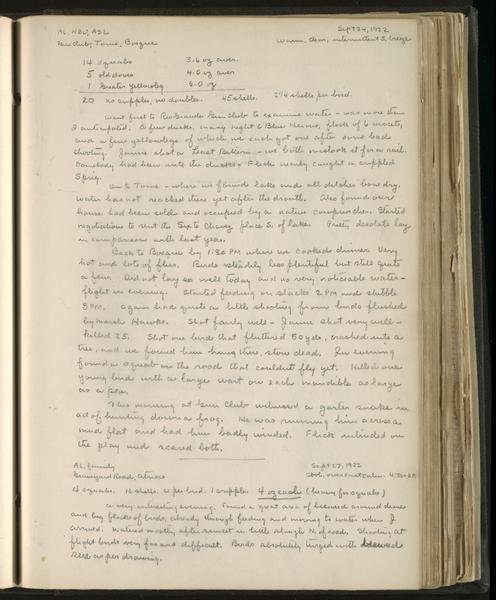 AL, NBJ, ASL Sept 24, 1922
Gun Club, Tome, Bosque Warm, clear, intermittent S. breeze
14 squabs 3.6 oz aver.
5 old doves 4.0 oz aver
1 Greater Yellowleg 6.0 oz
20 no cripples, no doubles. 45 shells. 2 1/4 shells per bird.
Went first to Rio Grande Gun Club to examine water - was more than
I anticipated. A few ducks, many night & Blue Herons, flock of 6 avocets,
and a few yellowlegs of which we each got one after some bad
shooting. Jamie shot a Least Bittern - we both mistook it for a rail.
Somebody had been into the ducks - Flick nearly caught a crippled
Sprig.
On to Tome - where we found lake and all ditches bone dry.
Water has not reached there yet after the drouth. Also found our
house had been sold and occupied by a native. Started
negotiations to rent the Sixto Chavez place S. of lake. Pretty desolate lay
in comparison with last year.
Back to Bosque by 1:30 PM where we cooked dinner. Very
hot and lots of flies. Birds steadily less plentiful but still quite
a few. Did not lay so well today and no very noticeable water-
flight in evening. Started feeding on stacks 2 PM and stubble
3 PM. Again had quite a little shooting from birds flushed
by Marsh Hawks. Shot fairly well - Jamie shot very well -
killed 25. Shot one bird that fluttered 50 yds, crashed into a
tree, and we found him hung there, stone dead. In evening
found a squab on the road that couldn't fly yet. Killed one
young bird with a large wart on each mandible as large
as a pea.
This morning at Gun Club witnessed a garter snake in
act of hunting down a frog. He was running him across a
mud flat and had him badly winded. Flick intruded on
the play and scared both.
AL, family Sept 27, 1922
Graveyard Road, Atrisco Cool, overcast, calm. 4:30-6 P.
4 squabs. 16 shells. 4 per bird. 1 cripple. 4 oz each (heavy for squabs)
A very interesting evening. Found a great area of beeweed around dunes
and big flocks of birds, already through feeding and moving to water when I
arrived. Waited mostly after sunset in little slough N. of road. Shooting at
flight birds very fun and difficult. Birds absolutely turgid with beeweed
seed as per drawing.